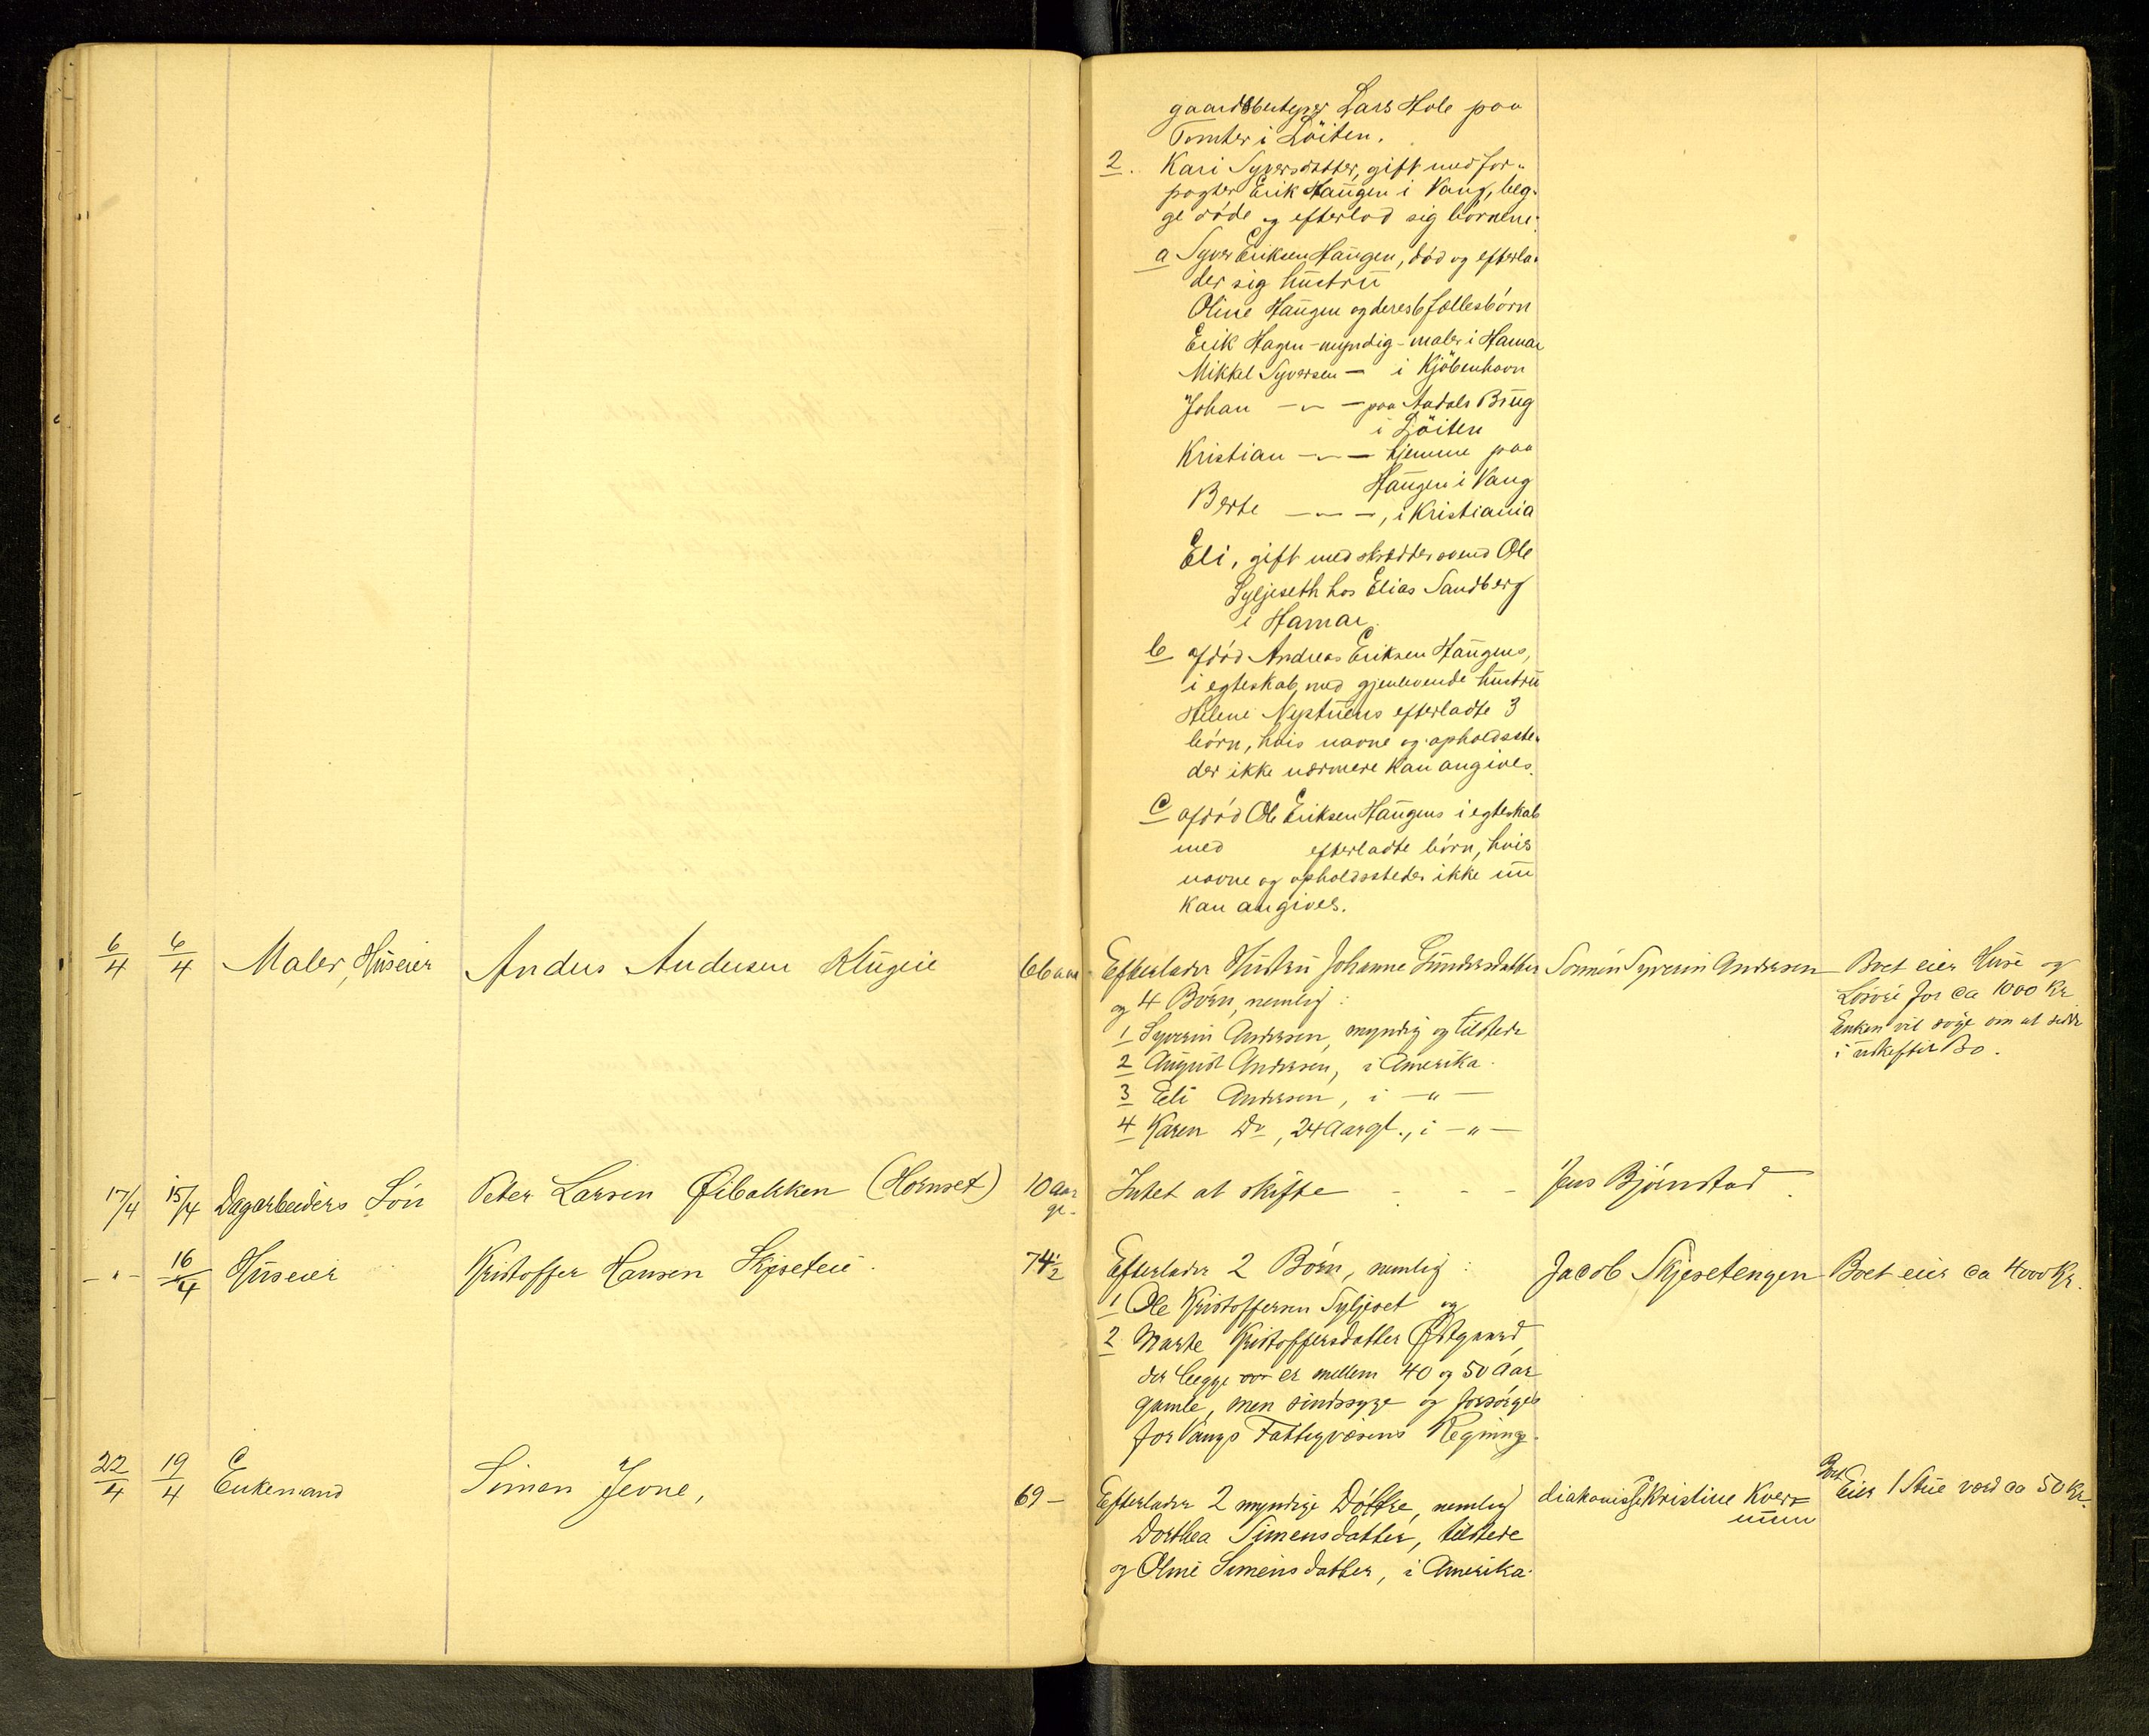 gaardsbestyrer Lars Hole paa
Tomter i Löiten.
2. Kari Syversdatter, gift med for-
pagter Erik Haugen i Vang, beg-
ge døde og efterlod sig børnene:
a Syver Eriksen Haugen, død og efterla-
der sig hustru
Oline Haugen og deres 6 fællesbørn
Erik Hagen - myndig - maler i Hamar
Mikkel Syversen — i Kjöbenhavn
Johan — " — paa Aadals Brug
i Löiten
Kristian — " — hjemme paa
Haugen i Vang
Berte — " —, i Kristiania
Eli, gift med skræddersvend Ole
Syljeseth hos Elias Sandberg
i Hamar.
b afdød Andreas Eriksen Haugens,
i egteskab med gjenlevende hustru
Helene Neptuens efterladte 3
børn, hvis navne og opholdsste-
der ikke nærmere kan angives.
c afdød Ole Eriksen Haugens i egteskab
med efterladte børn, hvis
navne og opholdssteder ikke nu
kan angives.
6/4 6/4 Maler, Huseier Anders Andersen Klugeie 66 aar Efterlader Hustru Johanne Gundersdatter Sønnen Syverin Andersen Boet eier Huse og
og 4 Børn, nemlig: Løsøre for ca 1000 Kr
1 Syverin Andersen, myndig og tilstede Enken vil søge om at sidde
2 August Andersen, i Amerika. i uskiftet Bo.
3 Eli Andersen, i — " —
4 Karen Do, 24 Aar gl., i — " —
17/4 15/4 Dagarbeiders Søn Peter Larsen Øibakken (Hornset) 10 aar Intet at skifte - - - Jens Bjørnstad.
gl.
- " - 16/4 Huseier Kristoffer Hansen Skjeseteie. 74 1/2 Efterlader 2 Børn, nemlig: Jacob Skjesetengen Boet eier ca 4000 Kr.
1 Ole Kristoffersen Syljeset og
2 Marte Kristoffersdatter Østgaard,
der begge er mellem 40 og 50 Aar
gamle, men sindssyge og forsørges
for Vangs Fattigvæsens Regning.
22/4 19/4 Enkemand Simen Jevne, 69 — Efterlader 2 myndige Døttre, nemlig diakonisse Kristine Kver= Boet Eier 1 Stue værd ca 50 Kr.
Dorthea Simensdatter, tilstede num
og Oline Simensdatter, i Amerika.